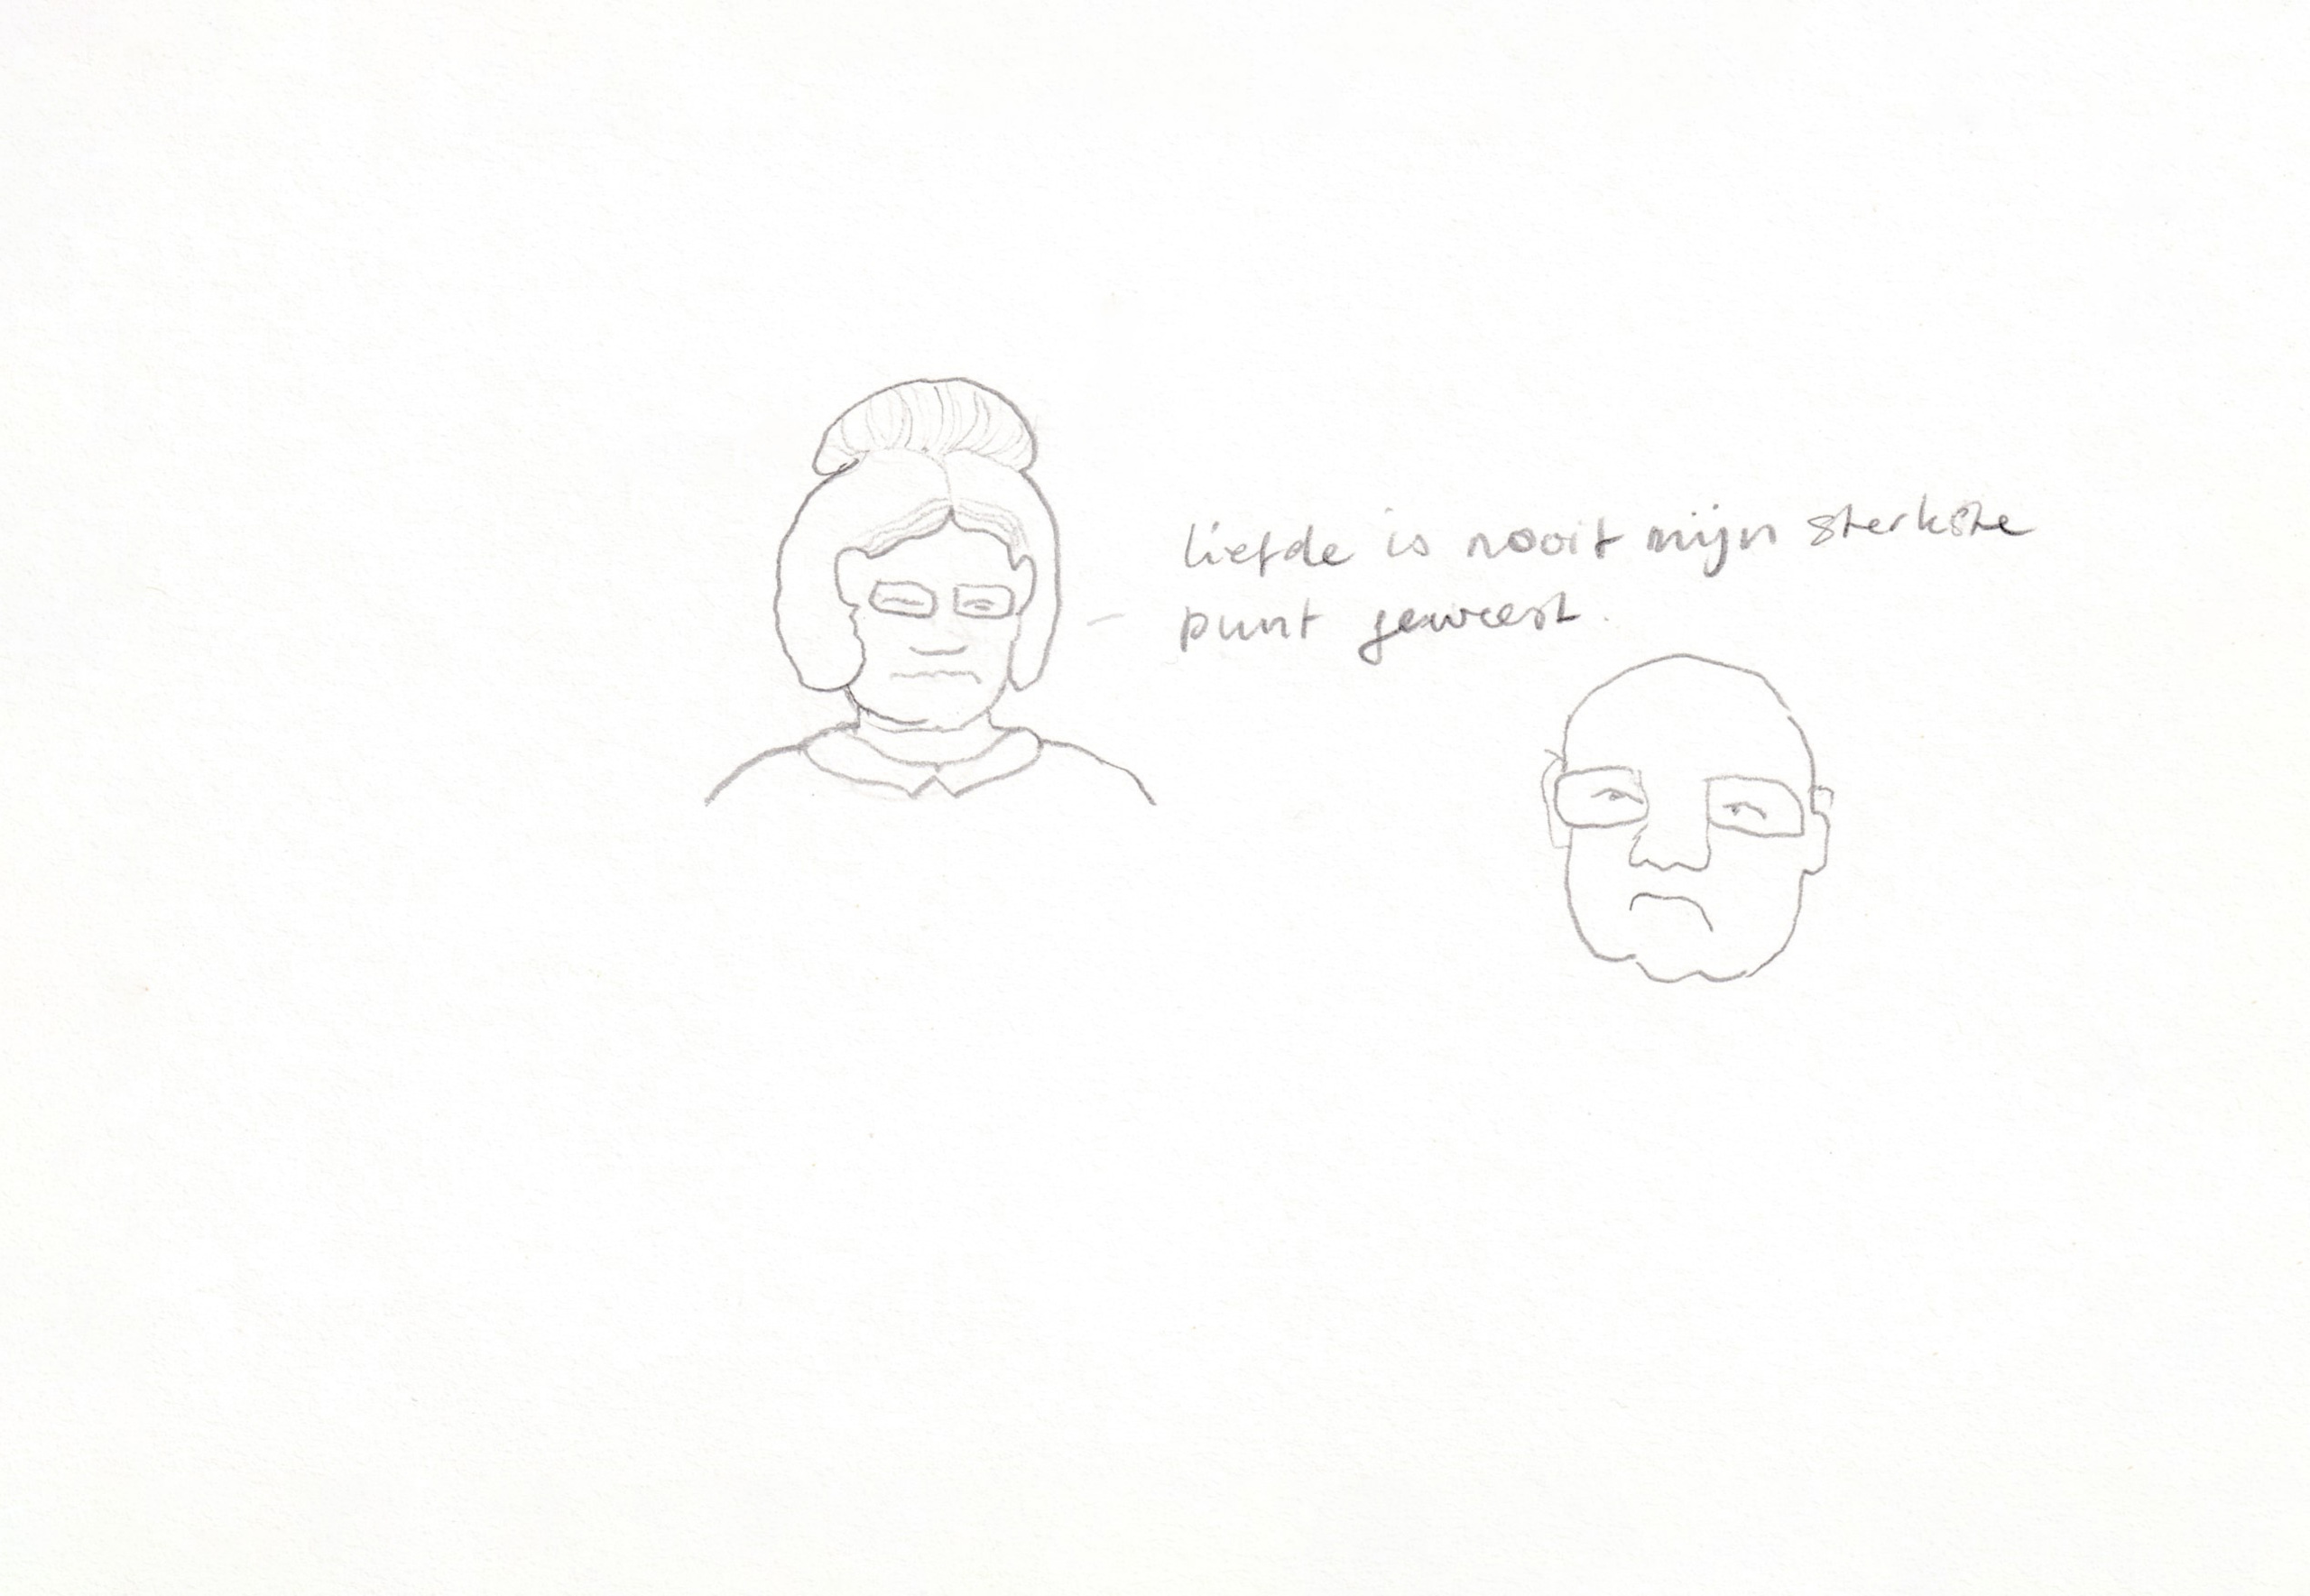 liefde is nooit mijn sterkste
punt geweest.